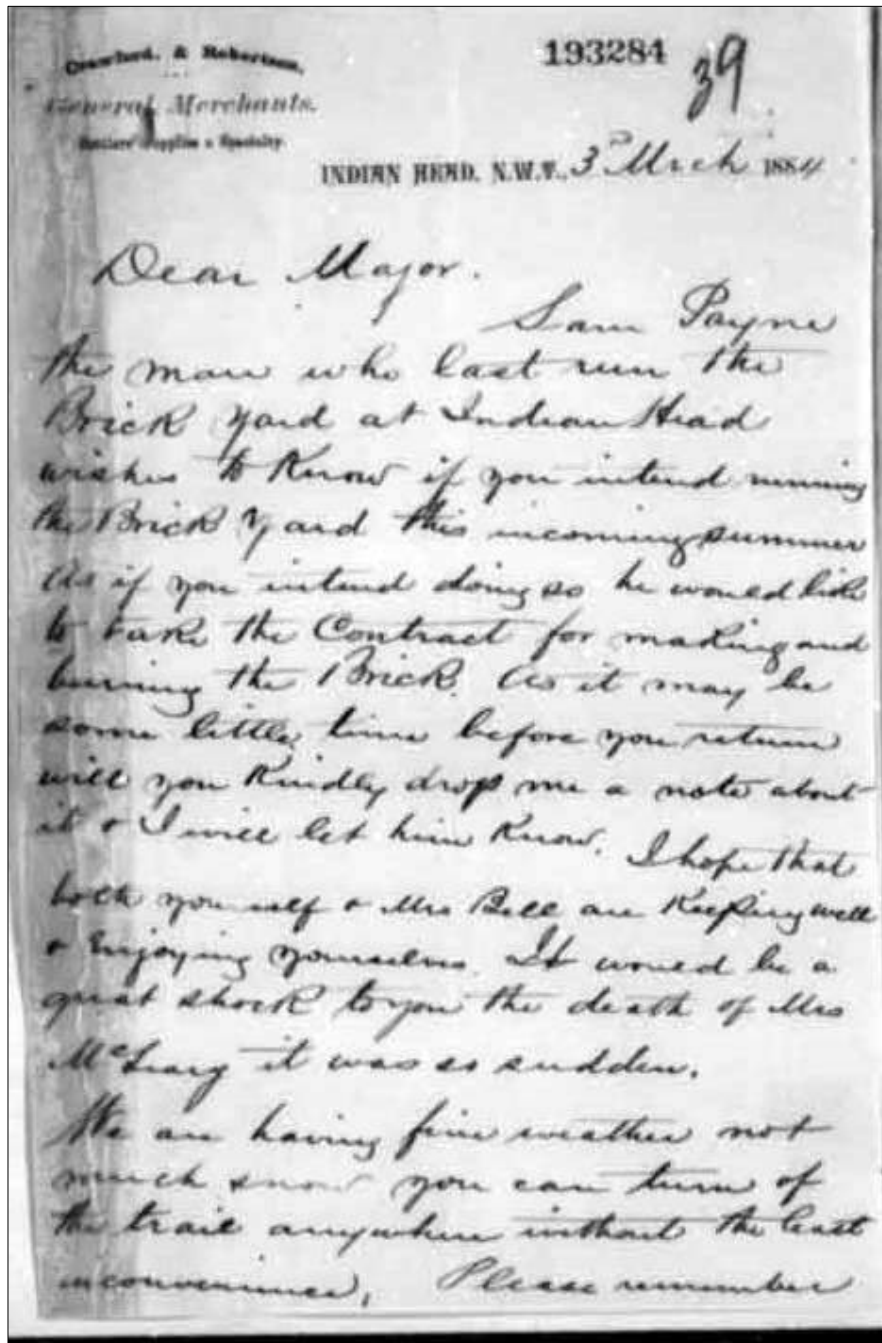 Crawford, & Robertson,
193284
39
General Merchants.
Settlers Supplies a Specialty.
INDIAN HEAD, N.W.T., 3d March 1884
Dear Major.
Sam Payne
the man who last run the
Brick Yard at Indian Head
wishes to Know if you intend running
the Brick Yard this incoming summer
As if you intend doing so he would like
to take the Contract for making and
burning the Brick. As it may be
some little time before you return
will you Kindly drop me a note about
it & I will let him Know. I hope that
both yourself & Mrs Bell are Keeping well
& Enjoying yourselves. It would be a
great shock to you the death of Mrs
it was so sudden.
We are having fine weather not
much snow you can turn of
the trail anywhere without the least
inconvenience, Please remember